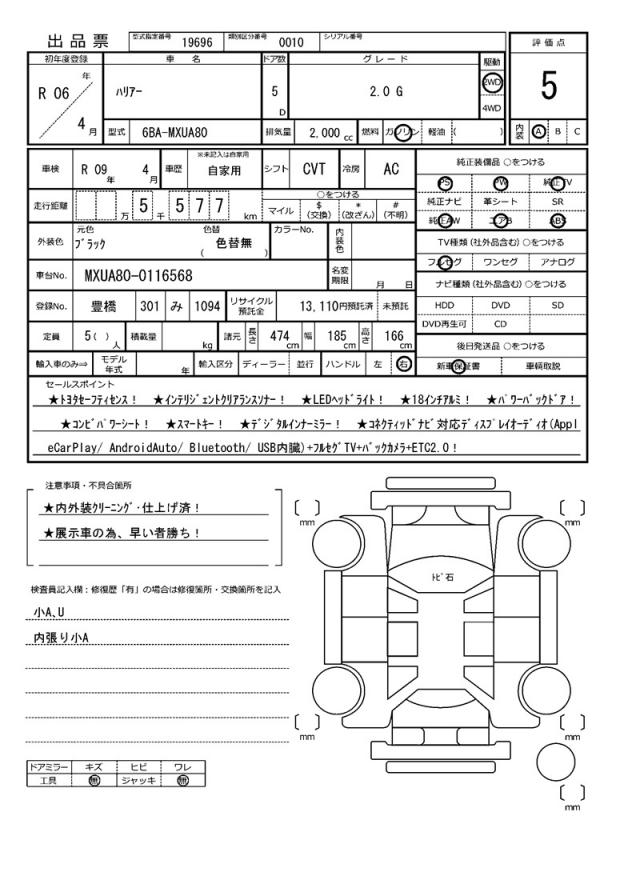 出品票 型式指定番号 19696 類別区分番号 0010 シリアル番号
評価点
初年度登録 車名 ドア数 グレード 駆動
R 06 年 4 月 ハリアー 5 D 2.0 G 2WD 4WD 5
型式 6BA-MXUA80 排気量 2,000 cc 燃料 ガソリン 軽油 ( ) 内装 A B C
車検 R 09 年 4 月 車歴 ※未記入は自家用 自家用 シフト CVT 冷房 AC
走行距離 万 5 千 5 7 7 km ○をつける マイル $ (交換) * (改ざん) # (不明)
外装色 元色 ブラック 色替 ( 色替無 ) カラーNo. 内装色
車台No. MXUA80-0116568 名変期限 月 日
登録No. 豊橋 301 み 1094 リサイクル預託金 13,110円預託済 未預託
定員 5( ) 人 積載量 kg 諸元 長さ 474 cm 幅 185 cm 高さ 166 cm
輸入車のみ⇒ モデル年式 年 輸入区分 ディーラー 並行 ハンドル 左 右
純正装備品 ○をつける
PS PW 純正TV
純正ナビ 革シート SR
純正AW エアB ABS
TV種類 (社外品含む) ○をつける
フルセグ ワンセグ アナログ
ナビ種類 (社外品含む) ○をつける
HDD DVD SD
DVD再生可 CD
後日発送品 ○をつける
新車保証書 車輌取説
セールスポイント
★トヨタセーフティセンス! ★インテリジェントクリアランスソナー! ★LEDヘッドライト! ★18インチアルミ! ★パワーバックドア!
★コンビパワーシート! ★スマートキー! ★デジタルインナーミラー! ★コネクティッドナビ対応ディスプレイオーディオ(Appl
eCarPlay/ AndroidAuto/ Bluetooth/ USB内臓)+フルセグTV+バックカメラ+ETC2.0!
注意事項・不具合箇所
★内外装クリーニング・仕上げ済!
★展示車の為、早い者勝ち!
検査員記入欄:修復歴「有」の場合は修復箇所・交換箇所を記入
小A、U
内張り小A
ドアミラー キズ ヒビ ワレ
工具 無 ジャッキ 無
mm
mm
トビ石
mm
mm
mm